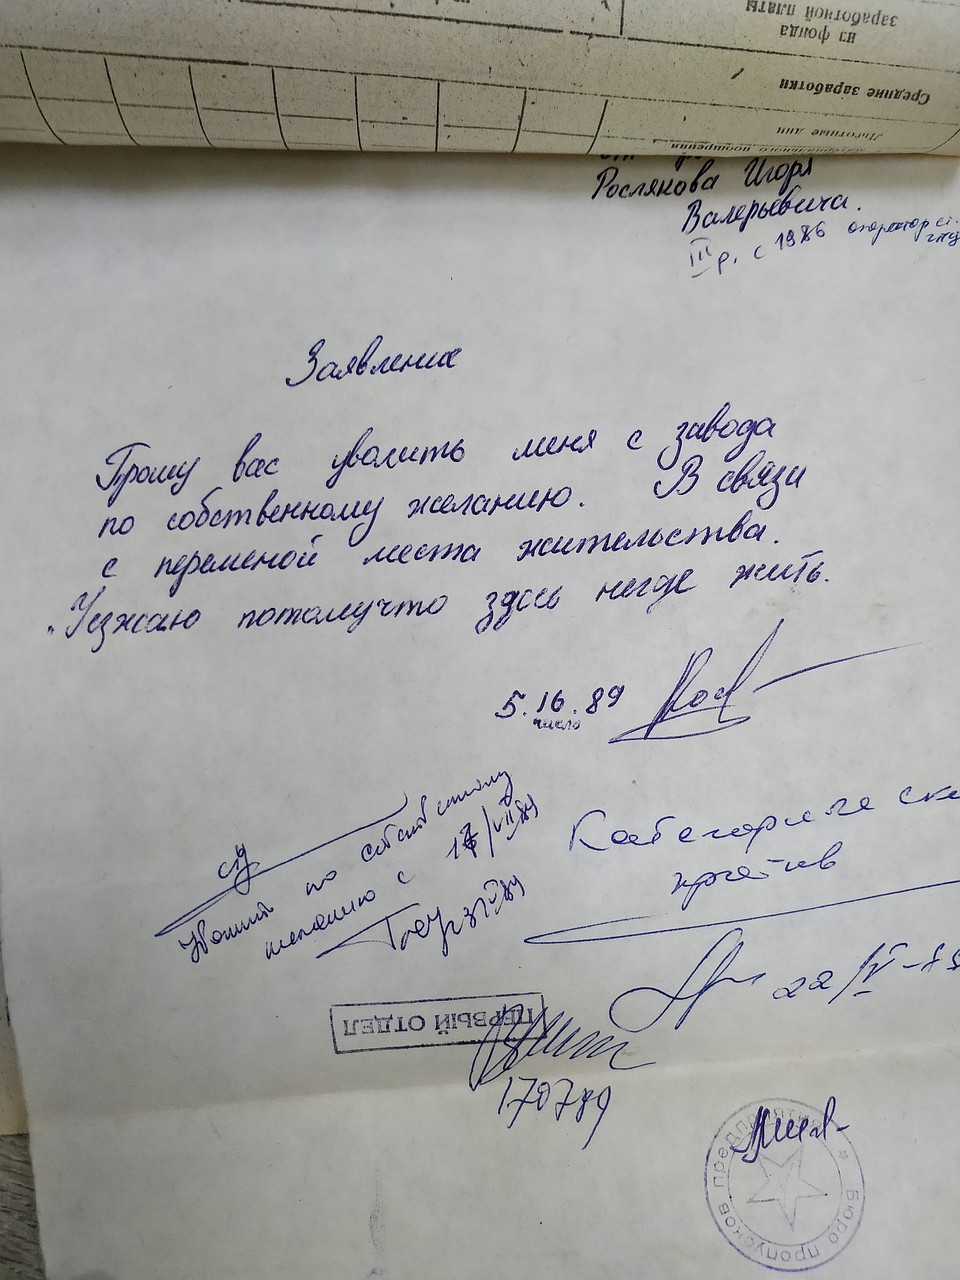 из фонда
заработной платы
Средние заработки
Льготные дни
материального поощрения
Рослякова Игоря
Валерьевича.
III р. с 1986 оператор ст.
Заявление
Прошу вас уволить меня с завода
по собственному желанию. В связи
с переменой места жительства.
Уезжаю потомучто здесь негде жить.
5.16.89
число
Категориче ски
против
Уволить по собственному
желанию с 17/VII 89
22/V-89
ПЕРВЫЙ ОТДЕЛ
170789
Бюро пропусков предприятия